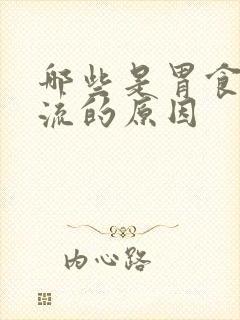 哪些是胃食
流的原因
内心路